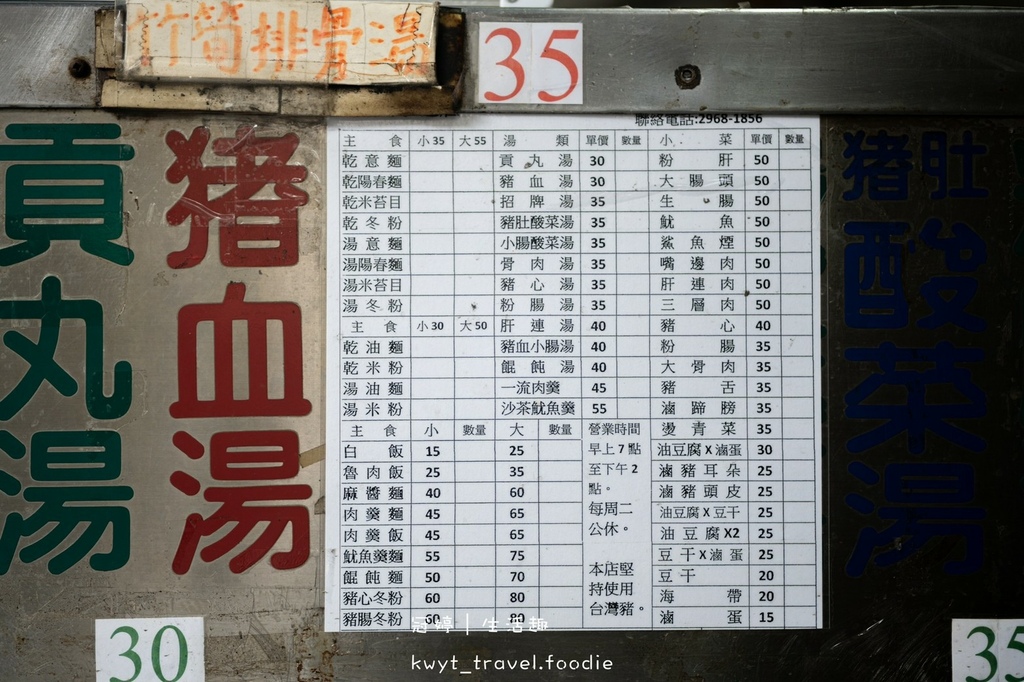 竹筍排骨湯
35
貢丸湯
豬血湯
30
聯絡電話:2968-1856
主食 小35 大55 湯類 單價 數量 小菜 單價 數量
乾意麵 貢丸湯 30 粉肝 50
乾陽春麵 豬血湯 30 大腸頭 50
乾米苔目 招牌湯 35 生腸 50
乾冬粉 豬肚酸菜湯 35 魷魚 50
湯意麵 小腸酸菜湯 35 鯊魚煙 50
湯陽春麵 骨肉湯 35 嘴邊肉 50
湯米苔目 豬心湯 35 肝連肉 50
湯冬粉 粉腸湯 35 三層肉 50
主食 小30 大50 肝連湯 40 豬心 40
乾油麵 豬血小腸湯 40 粉腸 35
乾米粉 餛飩湯 40 大骨肉 35
湯油麵 一流肉羹 45 豬舌 35
湯米粉 沙茶魷魚羹 55 滷蹄膀 35
主食 小 數量 大 數量 營業時間 燙青菜 35
白飯 15 25 早上7點 油豆腐X滷蛋 30
魯肉飯 25 35 至下午2 滷豬耳朵 25
麻醬麵 40 60 點。 滷豬頭皮 25
肉羹麵 45 65 每周二 油豆腐X豆干 25
肉羹飯 45 65 公休。 油豆腐X2 25
魷魚羹麵 55 75 豆干X滷蛋 25
餛飩麵 50 70 本店堅 豆干 20
豬心冬粉 60 80 持使用 海帶 20
豬腸冬粉 60 80 台灣豬。 滷蛋 15
豬肚酸菜湯
35
kwyt_travel.foodie